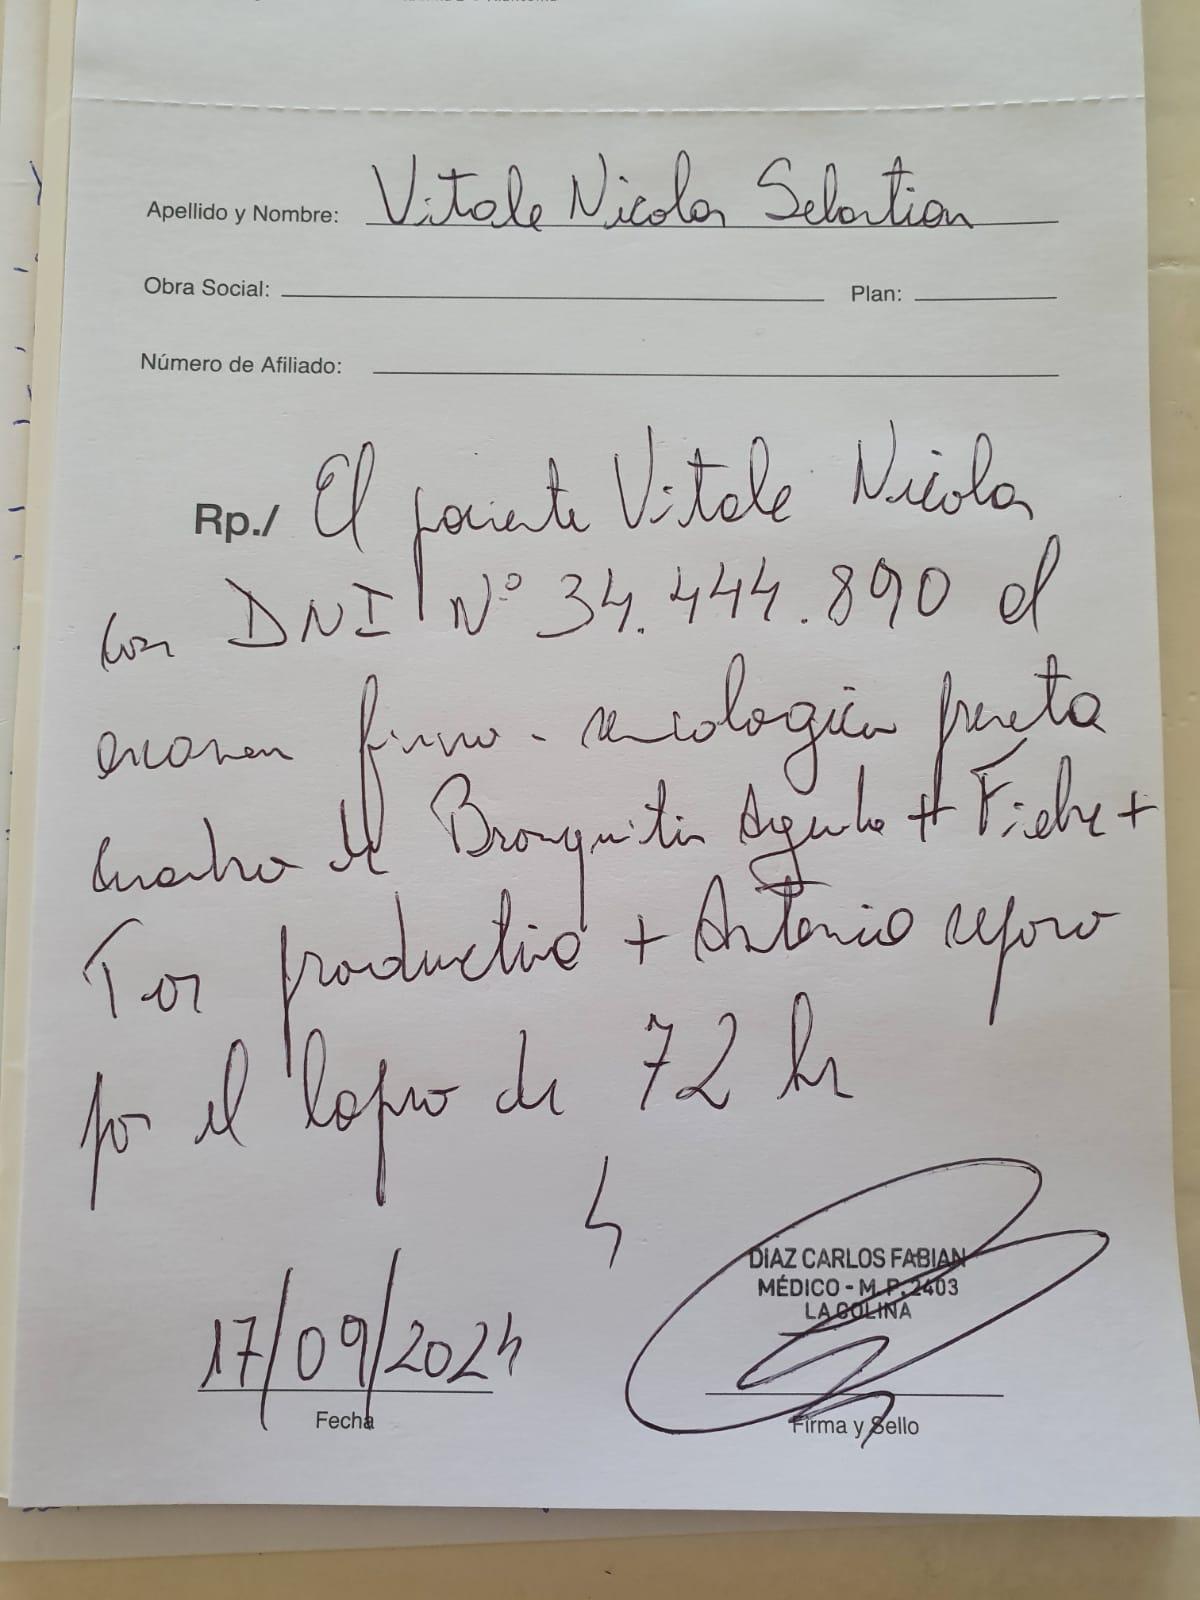 Apellido y Nombre: Vitale Nicolas Sebastian
Obra Social: Plan:
Número de Afiliado:
Rp./ El paciente Vitale Nicolas
con DNI N° 34.444.890 al
examen fisico - semiologico presenta
cuadro de Bronquitis Aguda + Fiebre +
Tos productiva + Astenia reposo
por el lapso de 72 hs
17/09/2024
Fecha
DIAZ CARLOS FABIAN
MÉDICO - M.P. 2403
LA COLINA
Firma y Sello